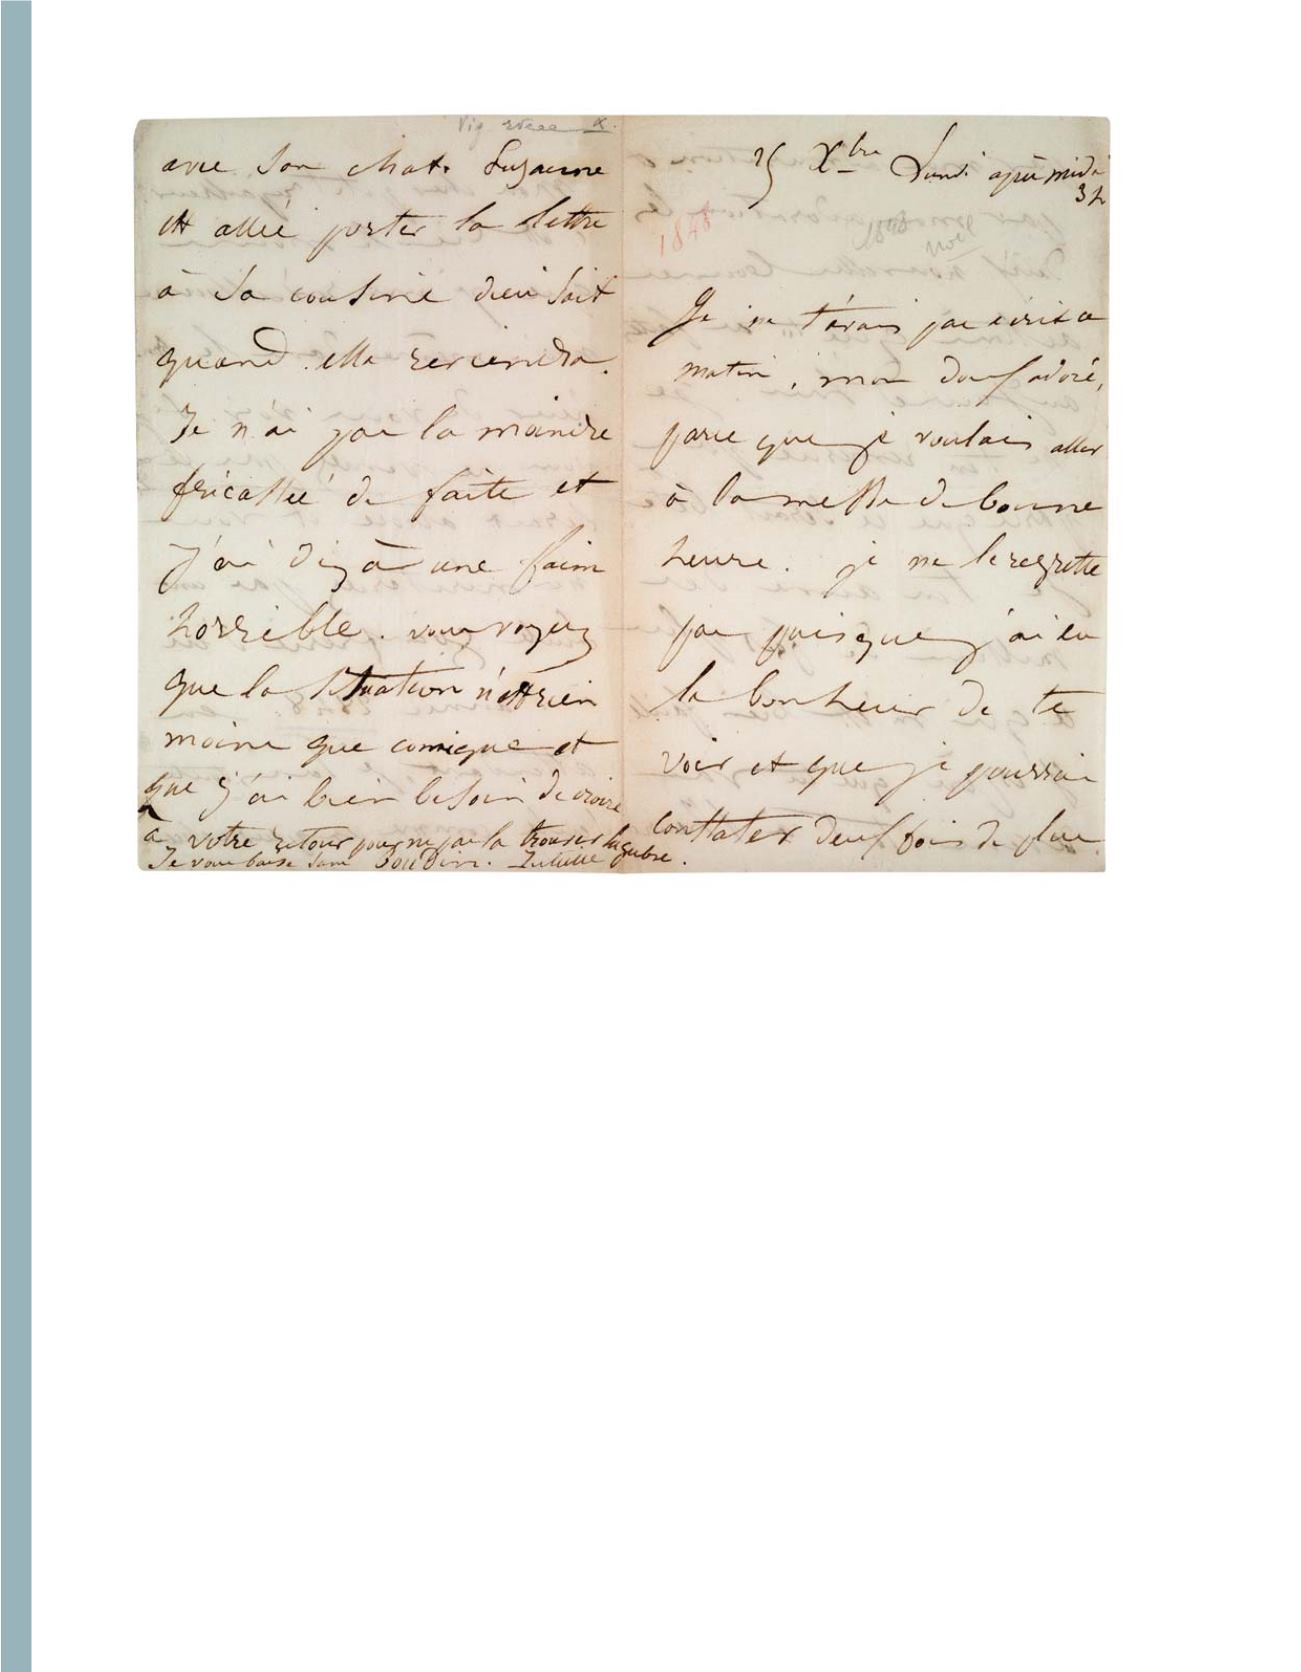 25 Xbre Lundi après midi
3 h
1848
1848
Noël
Je ne t'avais pas écrit ce
matin, mon doux adoré,
parce que je voulais aller
à la messe de bonne
heure. je ne le regrette
pas puisque j'ai eu
le bonheur de te
voir et que je pourrai
constater deux fois de plus
avec son chat. Suzanne
est allée porter la lettre
à sa cousine dieu sait
quand elle reviendra.
Je n'ai pas la moindre
fricassée de faite et
j'ai déjà une faim
horrible. vous voyez
que la situation n'est rien
moins que comique et
que j'ai bien besoin de croire
à votre retour pour ne pas la trouver lugubre.
Je vous baise sans boudin. Juliette